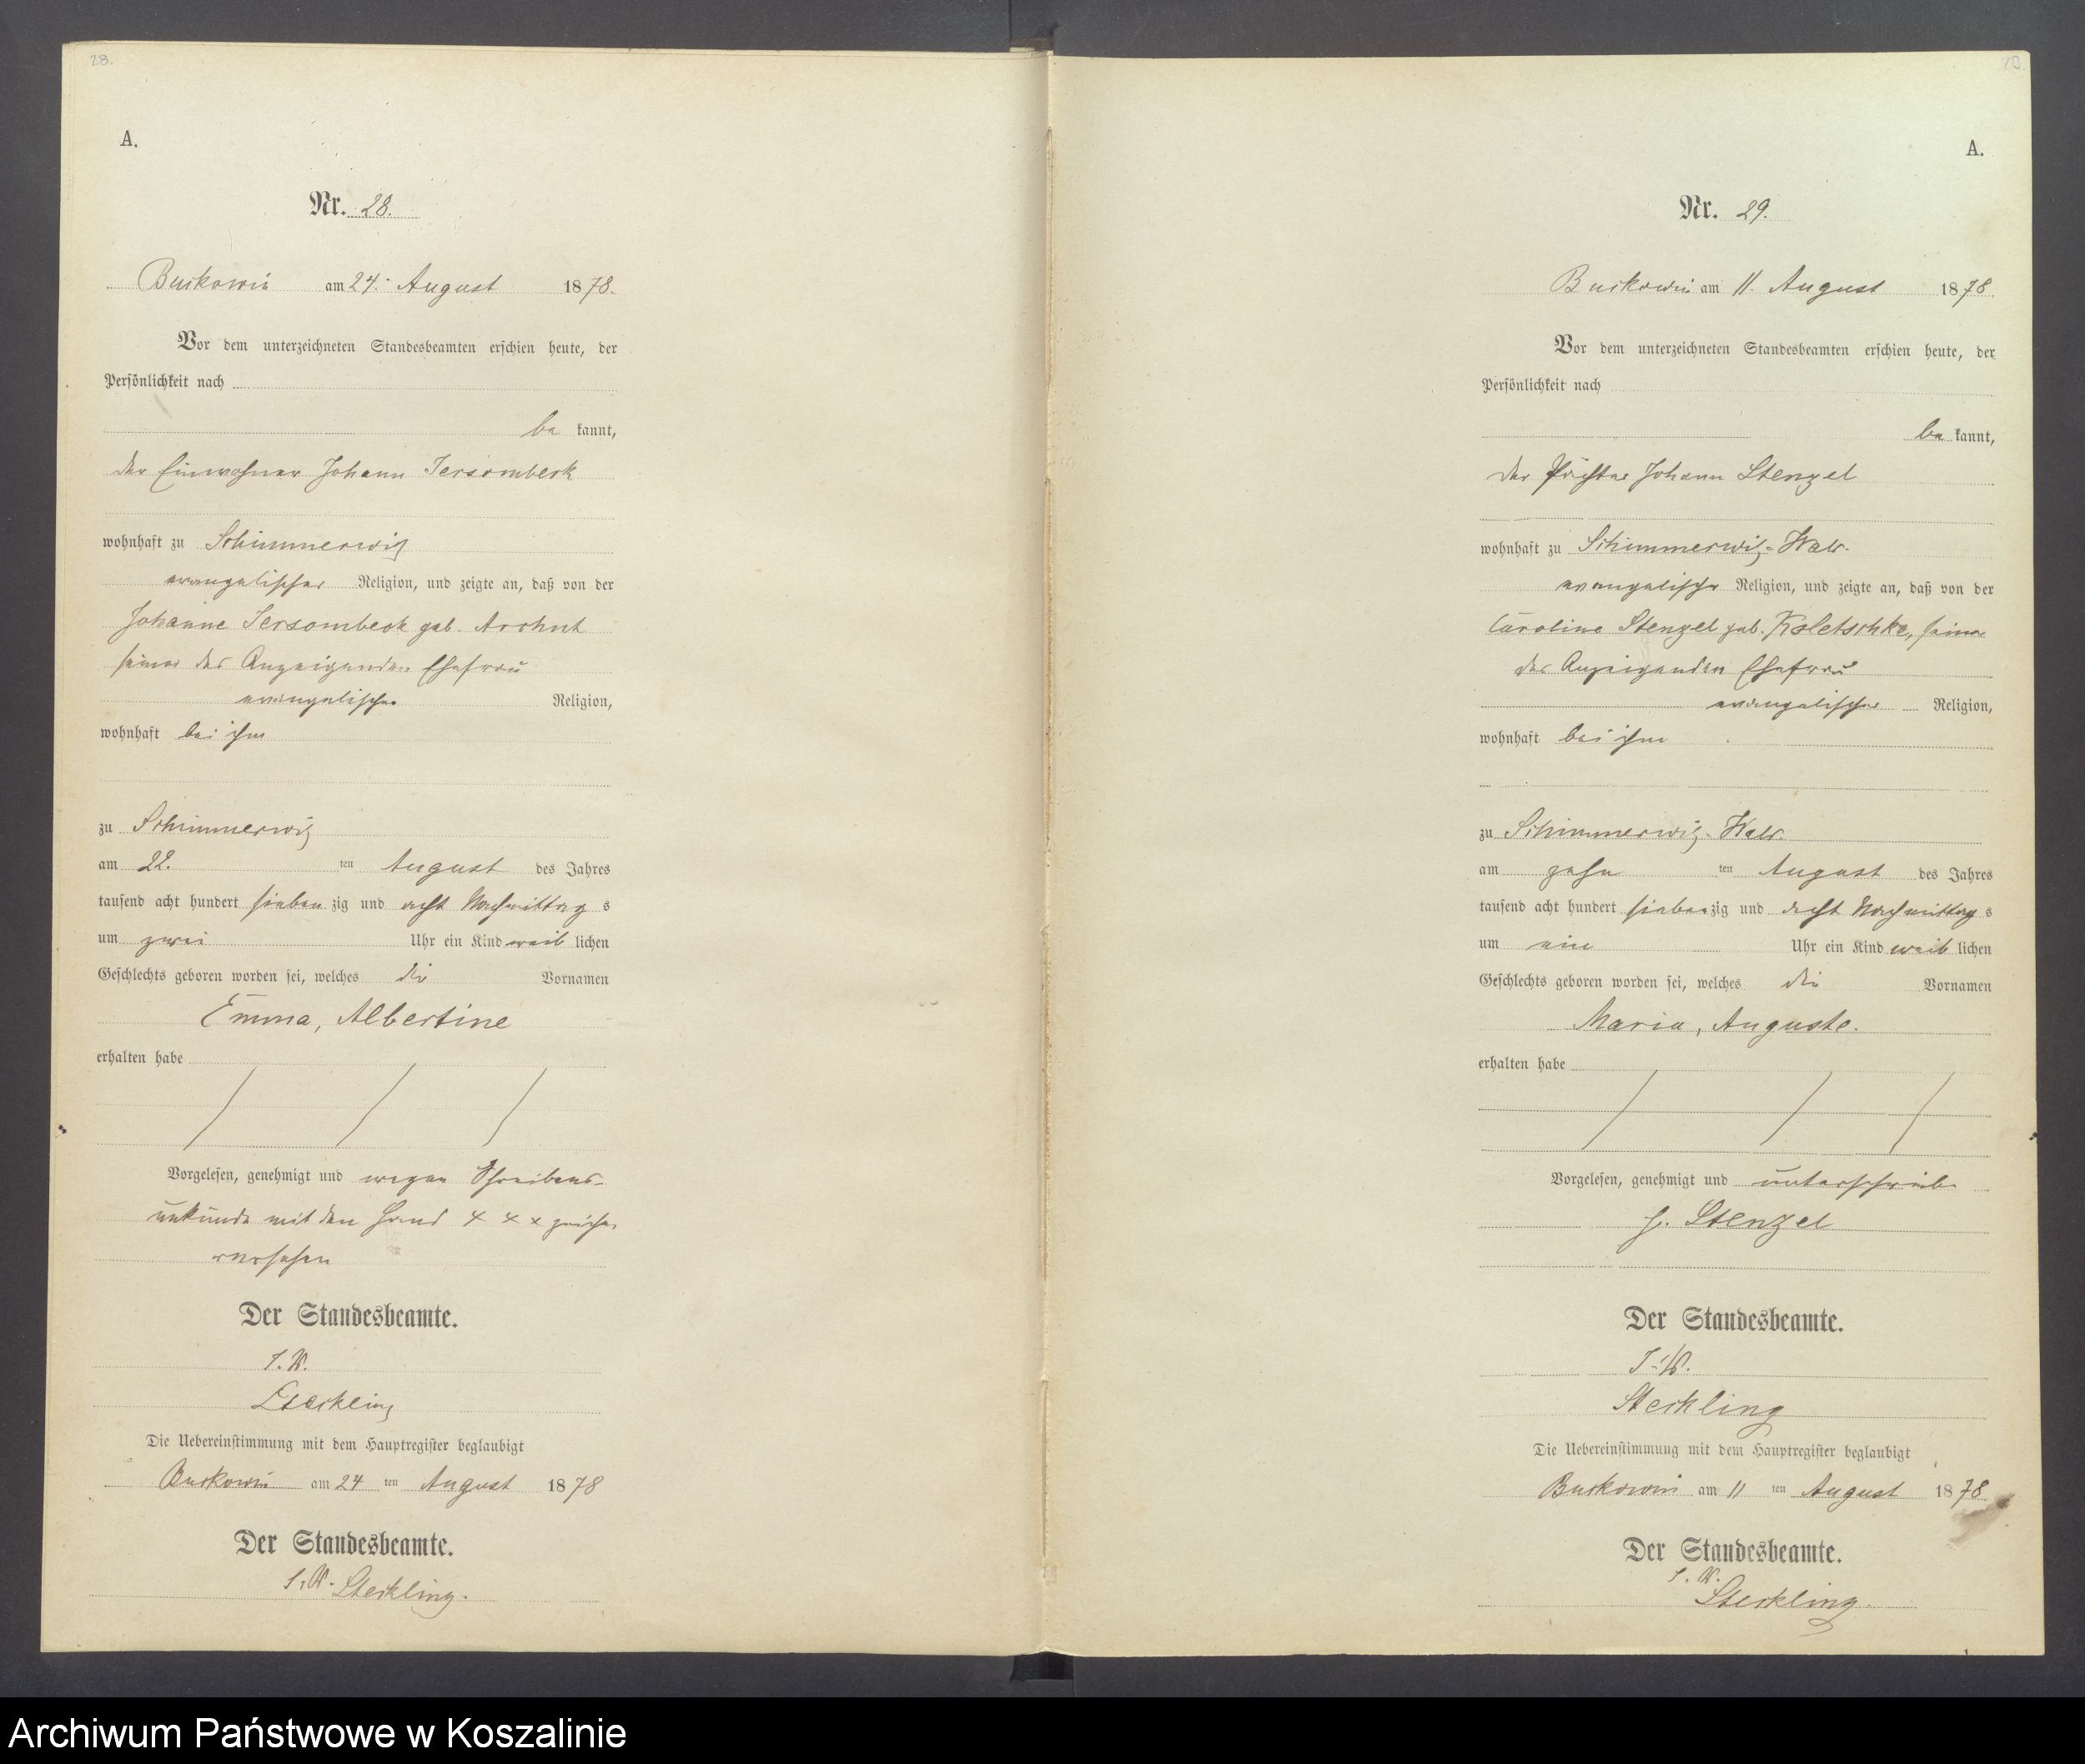 28.
A.
Nr. 28.
Buckowin am 24. August 1878.
Vor dem unterzeichneten Standesbeamten erschien heute, der
Persönlichkeit nach
be kannt,
der Einwohner Johann Jersombeck
wohnhaft zu Schimmerwitz
evangelischer Religion, und zeigte an, daß von der
Johanne Jersombeck geb. Archut
seiner des Anzeigenden Ehefrau
evangelischer Religion,
wohnhaft bei ihm
zu Schimmerwitz
am 22. ten August des Jahres
tausend acht hundert sieben zig und acht Nachmittag s
um zwei Uhr ein Kind weib lichen
Geschlechts geboren worden sei, welches die Vornamen
Emma, Albertine
erhalten habe
Vorgelesen, genehmigt und wegen Schreibens-
unkunde mit den Hand x x x zeichen
versehen
Der Standesbeamte.
I. V.
Steckling
Die Uebereinstimmung mit dem Hauptregister beglaubigt
Buckowin am 24 ten August 1878
Der Standesbeamte.
I. V. Steckling.
A.
Nr. 29.
Buckowin am 11. August 1878
Vor dem unterzeichneten Standesbeamten erschien heute, der
Persönlichkeit nach
be kannt,
der Pächter Johann Stenzel
wohnhaft zu Schimmerwitz-
evangelischer Religion, und zeigte an, daß von der
Caroline Stenzel geb. Koletschke, seiner
des Anzeigenden Ehefrau
evangelischer Religion,
wohnhaft bei ihm
zu Schimmerwitz-
am zehn ten August des Jahres
tausend acht hundert sieben zig und acht Nachmittag s
um ein Uhr ein Kind weib lichen
Geschlechts geboren worden sei, welches die Vornamen
Maria, Auguste.
erhalten habe
Vorgelesen, genehmigt und unterschrieben
J. Stenzel
Der Standesbeamte.
I. V.
Steckling
Die Uebereinstimmung mit dem Hauptregister beglaubigt
Buckowin am 11 ten August 1878
Der Standesbeamte.
I. V.
Steckling.
Archiwum Państwowe w Koszalinie